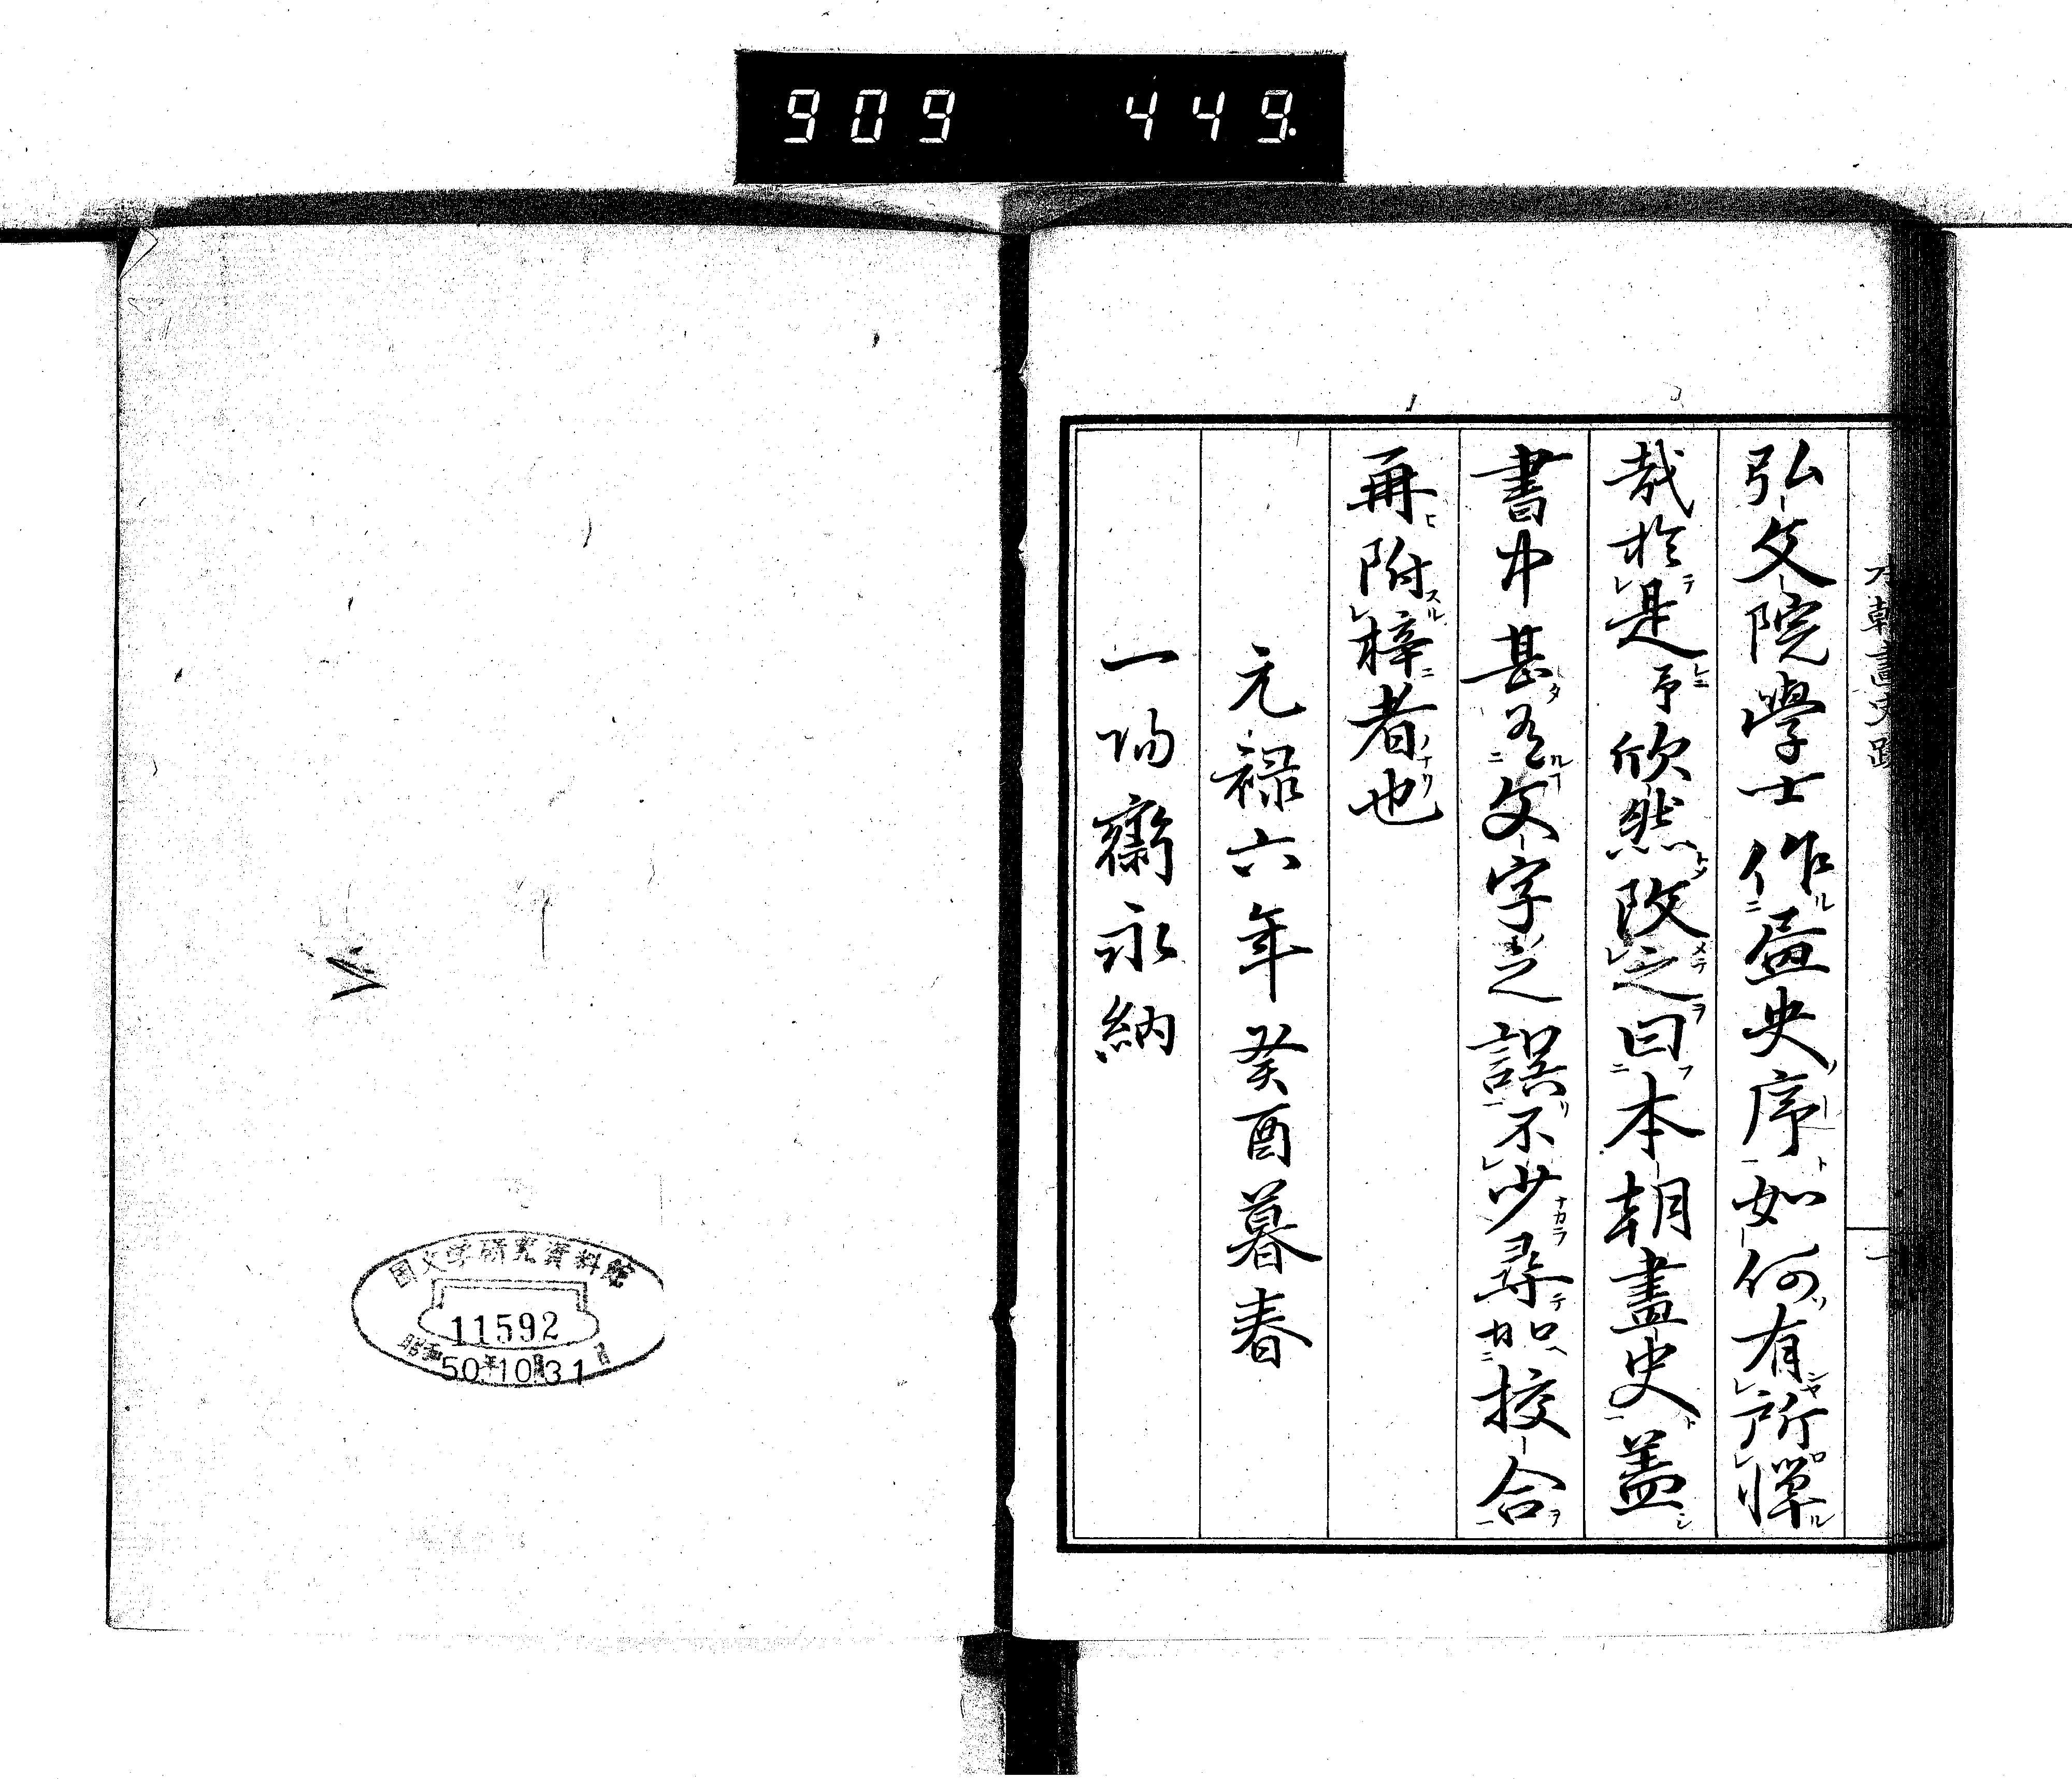 909 449.
本朝畫史跋
弘文院學士作畫史序如何有所憚
哉於是予欣然改之曰本朝畫史蓋
書中甚有文字之誤不少尋加校合
再附梓者也
元禄六年癸酉暮春
一陽齋永納
国文学研究資料館
11592
昭和50年10月31日